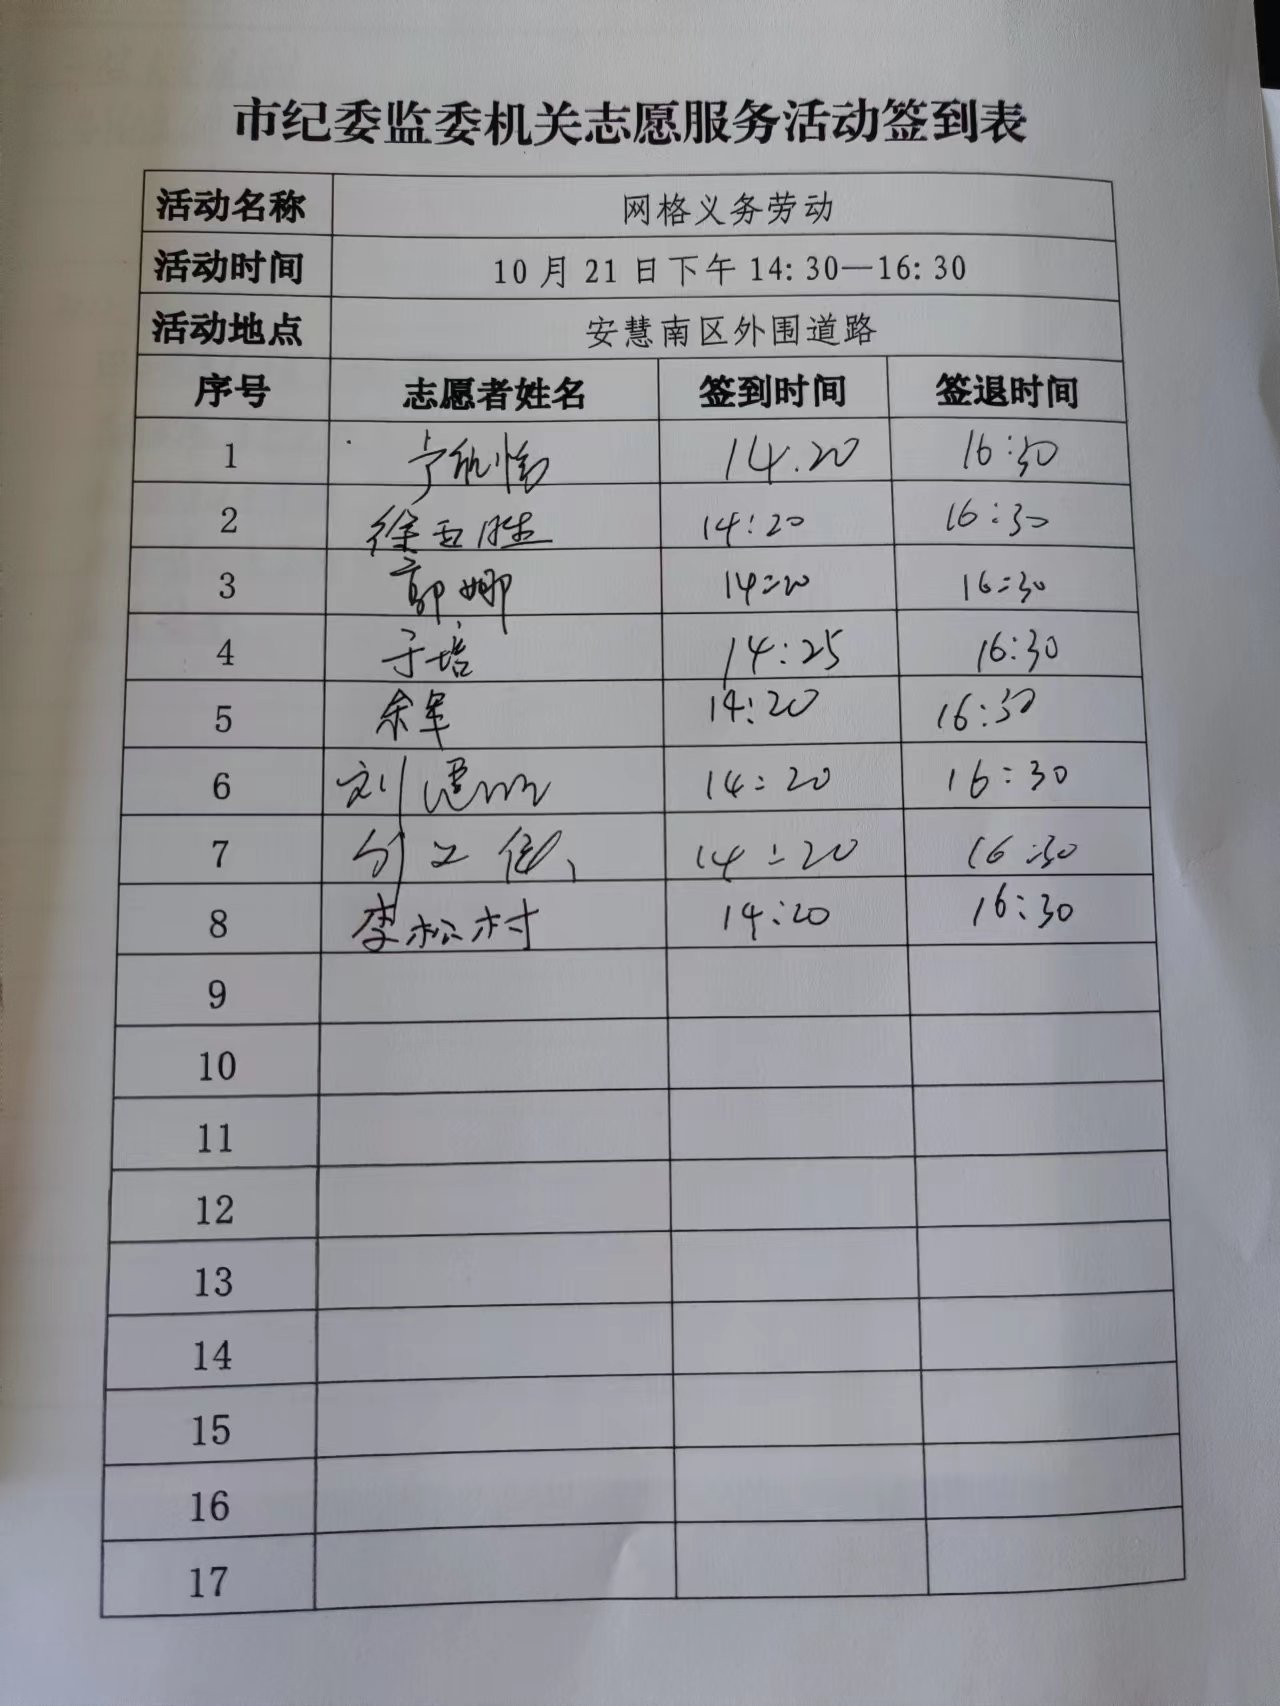 市纪委监委机关志愿服务活动签到表
活动名称 网格义务劳动
活动时间 10月21日下午14:30—16:30
活动地点 安慧南区外围道路
序号 志愿者姓名 签到时间 签退时间
1 14.20 16:30
2 14:20 16:30
3 郭娜 14:20 16:30
4 于培 14:25 16:30
5 余军 14:20 16:30
6 刘 14:20 16:30
7 14:20 16:30
8 李松村 14:20 16:30
9
10
11
12
13
14
15
16
17